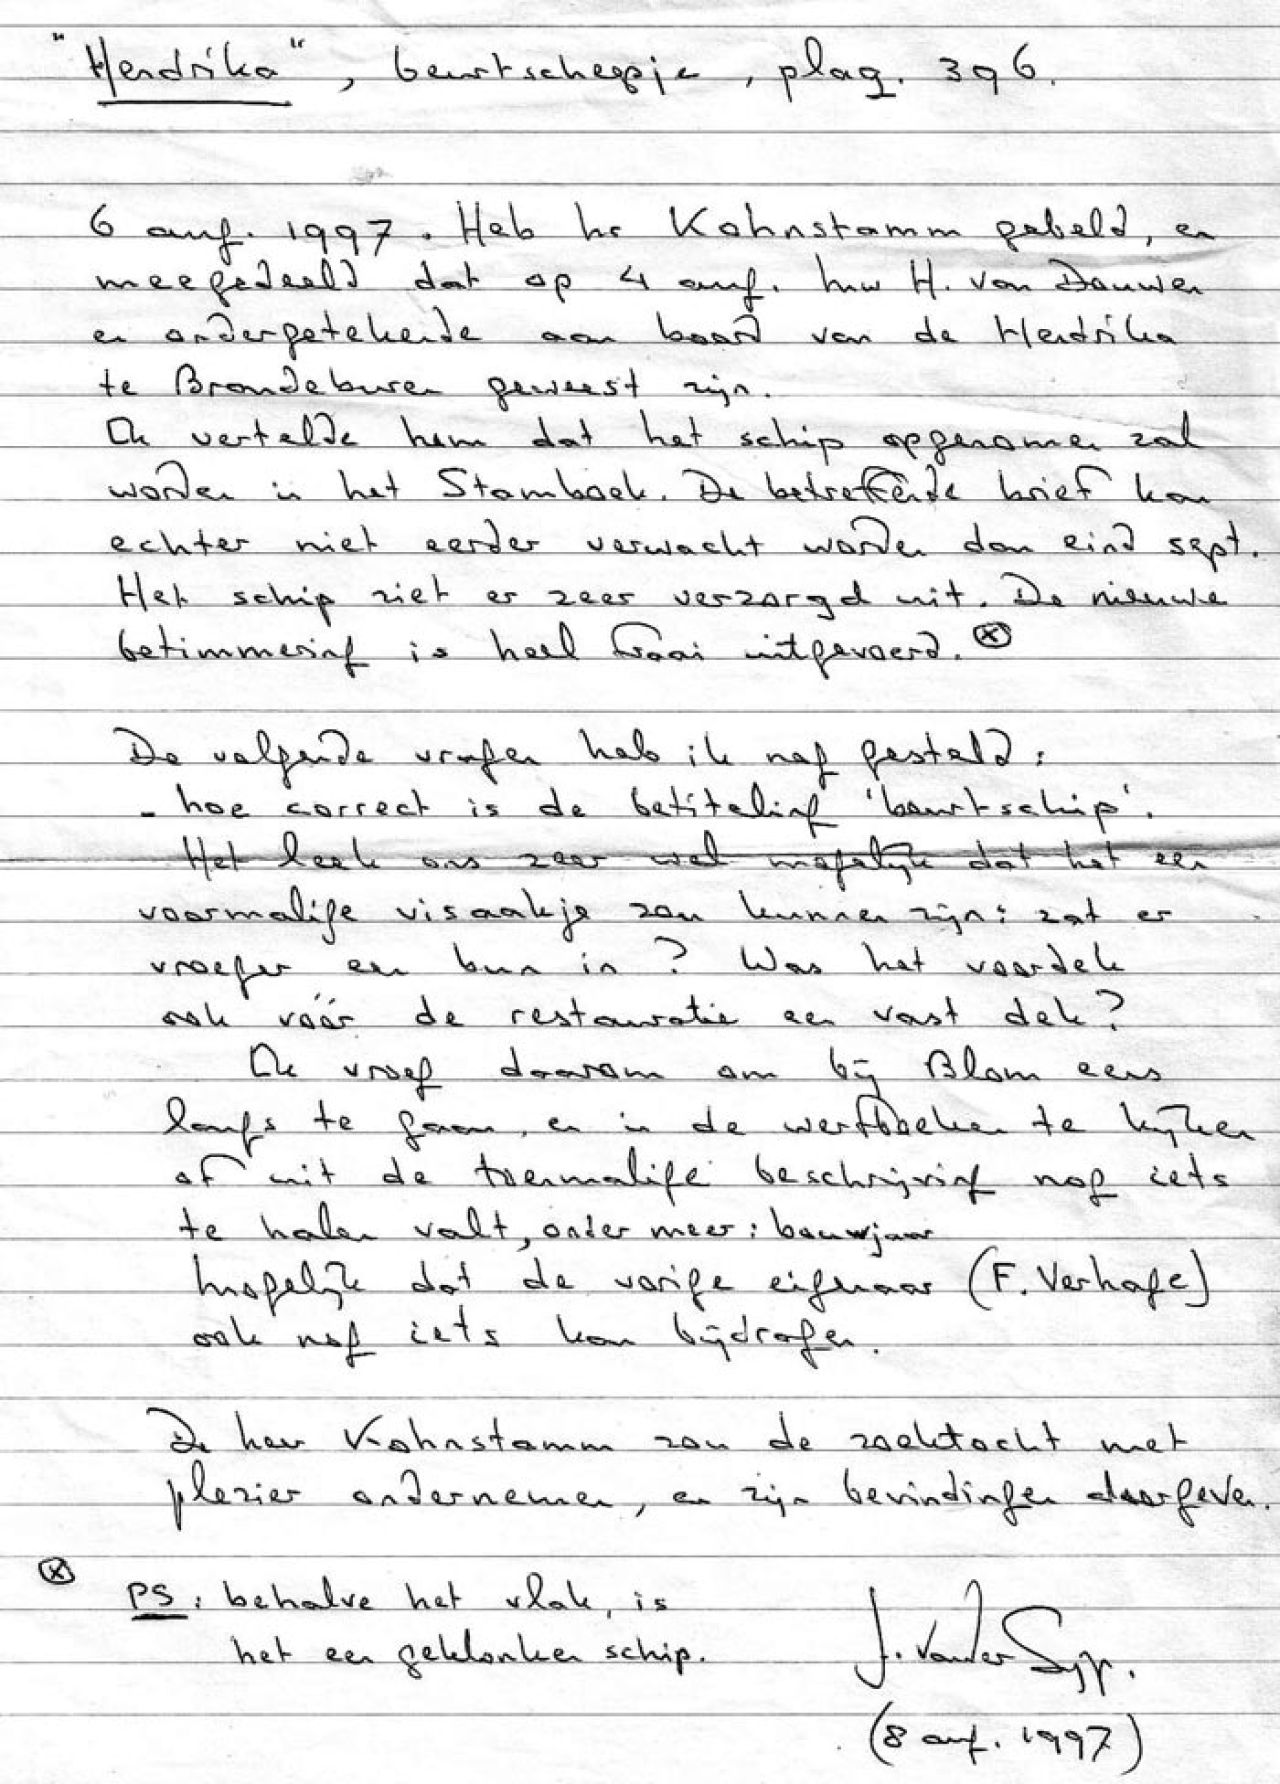 "Hendrika", beurtscheepje, plaq. 396.
6 aug. 1997. Heb hr Kohnstamm gebeld, en
meegedeeld dat op 4 aug. mw H. van Douwen
en ondergetekende aan boord van de Hendrika
te Brandeburen geweest zijn.
Ik vertelde hem dat het schip opgenomen zal
worden in het Stamboek. De betreffende brief kan
echter niet eerder verwacht worden dan eind sept.
Het schip ziet er zeer verzorgd uit. De nieuwe
betimmering is heel fraai uitgevoerd. (x)
De volgende vragen heb ik nog gesteld:
- hoe correct is de betiteling 'beurtschip'.
Het leek ons zeer wel mogelijk dat het een
voormalige visaakje zou kunnen zijn: zat er
vroeger een bun in? Was het voordek
ook vóór de restauratie een vast dek?
Ik vroeg daarom om bij Blom eens
langs te gaan, en in de werfboeken te kijken
of uit de toenmalige beschrijving nog iets
te halen valt, onder meer: bouwjaar
Mogelijk dat de vorige eigenaar (F. Verhage)
ook nog iets kan bijdragen.
De heer Kohnstamm zou de zoektocht met
plezier ondernemen, en zijn bevindingen doorgeven.
(x) PS: behalve het vlak, is
het een geklonken schip.
J. van der Syp.
(8 aug. 1997)